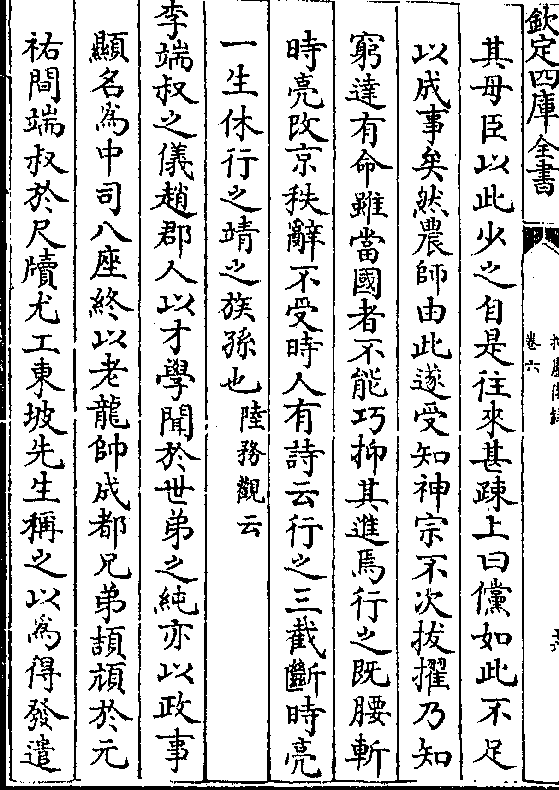 欽定四庫全書
卷六
其母臣以此少之自是往來甚疎上曰儻如此不足
以成事矣然農師由此遂受知神宗不次拔擢乃知
窮達有命雖當國者不能巧抑其進焉行之既腰斬
時亮改京秩辭不受時人有詩云行之三截斷時亮
一生休行之靖之族孫也陸務觀云
李端叔之儀趙郡人以才學聞於世弟之純亦以政事
顯名為中司八座終以老龍帥成都兄弟頡頏於元
祐間端叔於尺牘尤工東坡先生稱之以為得發遣